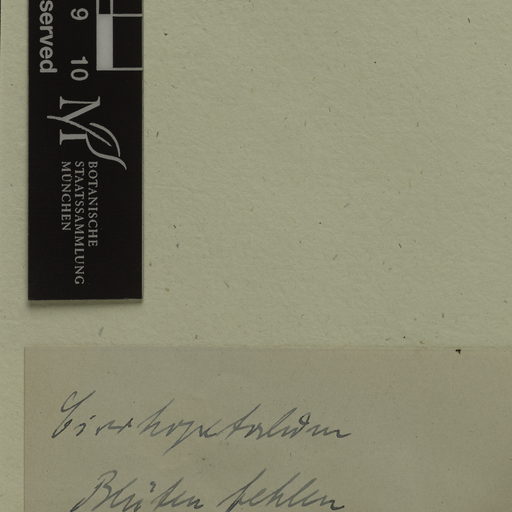 served
9 10
M
BOTANISCHE
STAATSSAMMLUNG
MÜNCHEN
Cirrhopetalum
Blüten fehlen